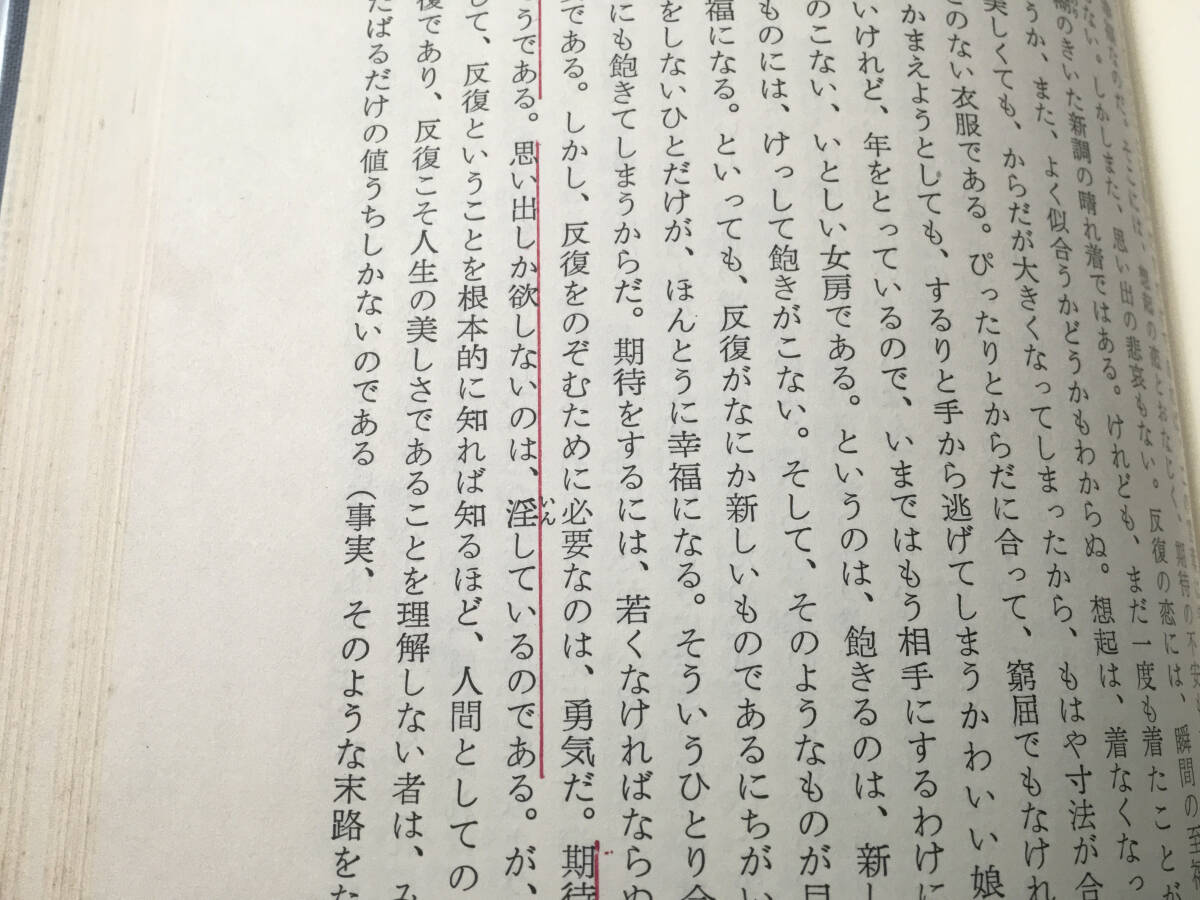 なのだ。そこには、想起の恋とおなじく、期待の不安
ない。しかしまた、思い出の悲哀もない。反復の恋には、瞬間の至福
のきいた新調の晴れ着ではある。けれども、まだ一度も着たことが
うか、また、よく似合うかどうかもわからぬ。想起は、着なくなっ
美しくても、からだが大きくなってしまったから、もはや寸法が合
とのない衣服である。ぴったりとからだに合って、窮屈でもなけれ
かまえようとしても、するりと手から逃げてしまうかわいい娘
いけれど、年をとっているので、いまではもう相手にするわけに
のこない、いとしい女房である。というのは、飽きるのは、新し
ものには、けっして飽きがこない。そして、そのようなものが目
福になる。といっても、反復がなにか新しいものであるにちがい
をしないひとだけが、ほんとうに幸福になる。そういうひとり合
にも飽きてしまうからだ。期待をするには、若くなければならぬ
である。しかし、反復をのぞむために必要なのは、勇気だ。期待
うである。思い出しか欲しないのは、淫いんしているのである。が、
して、反復ということを根本的に知れば知るほど、人間としての
復であり、反復こそ人生の美しさであることを理解しない者は、み
たばるだけの値うちしかないのである（事実、そのような末路をた